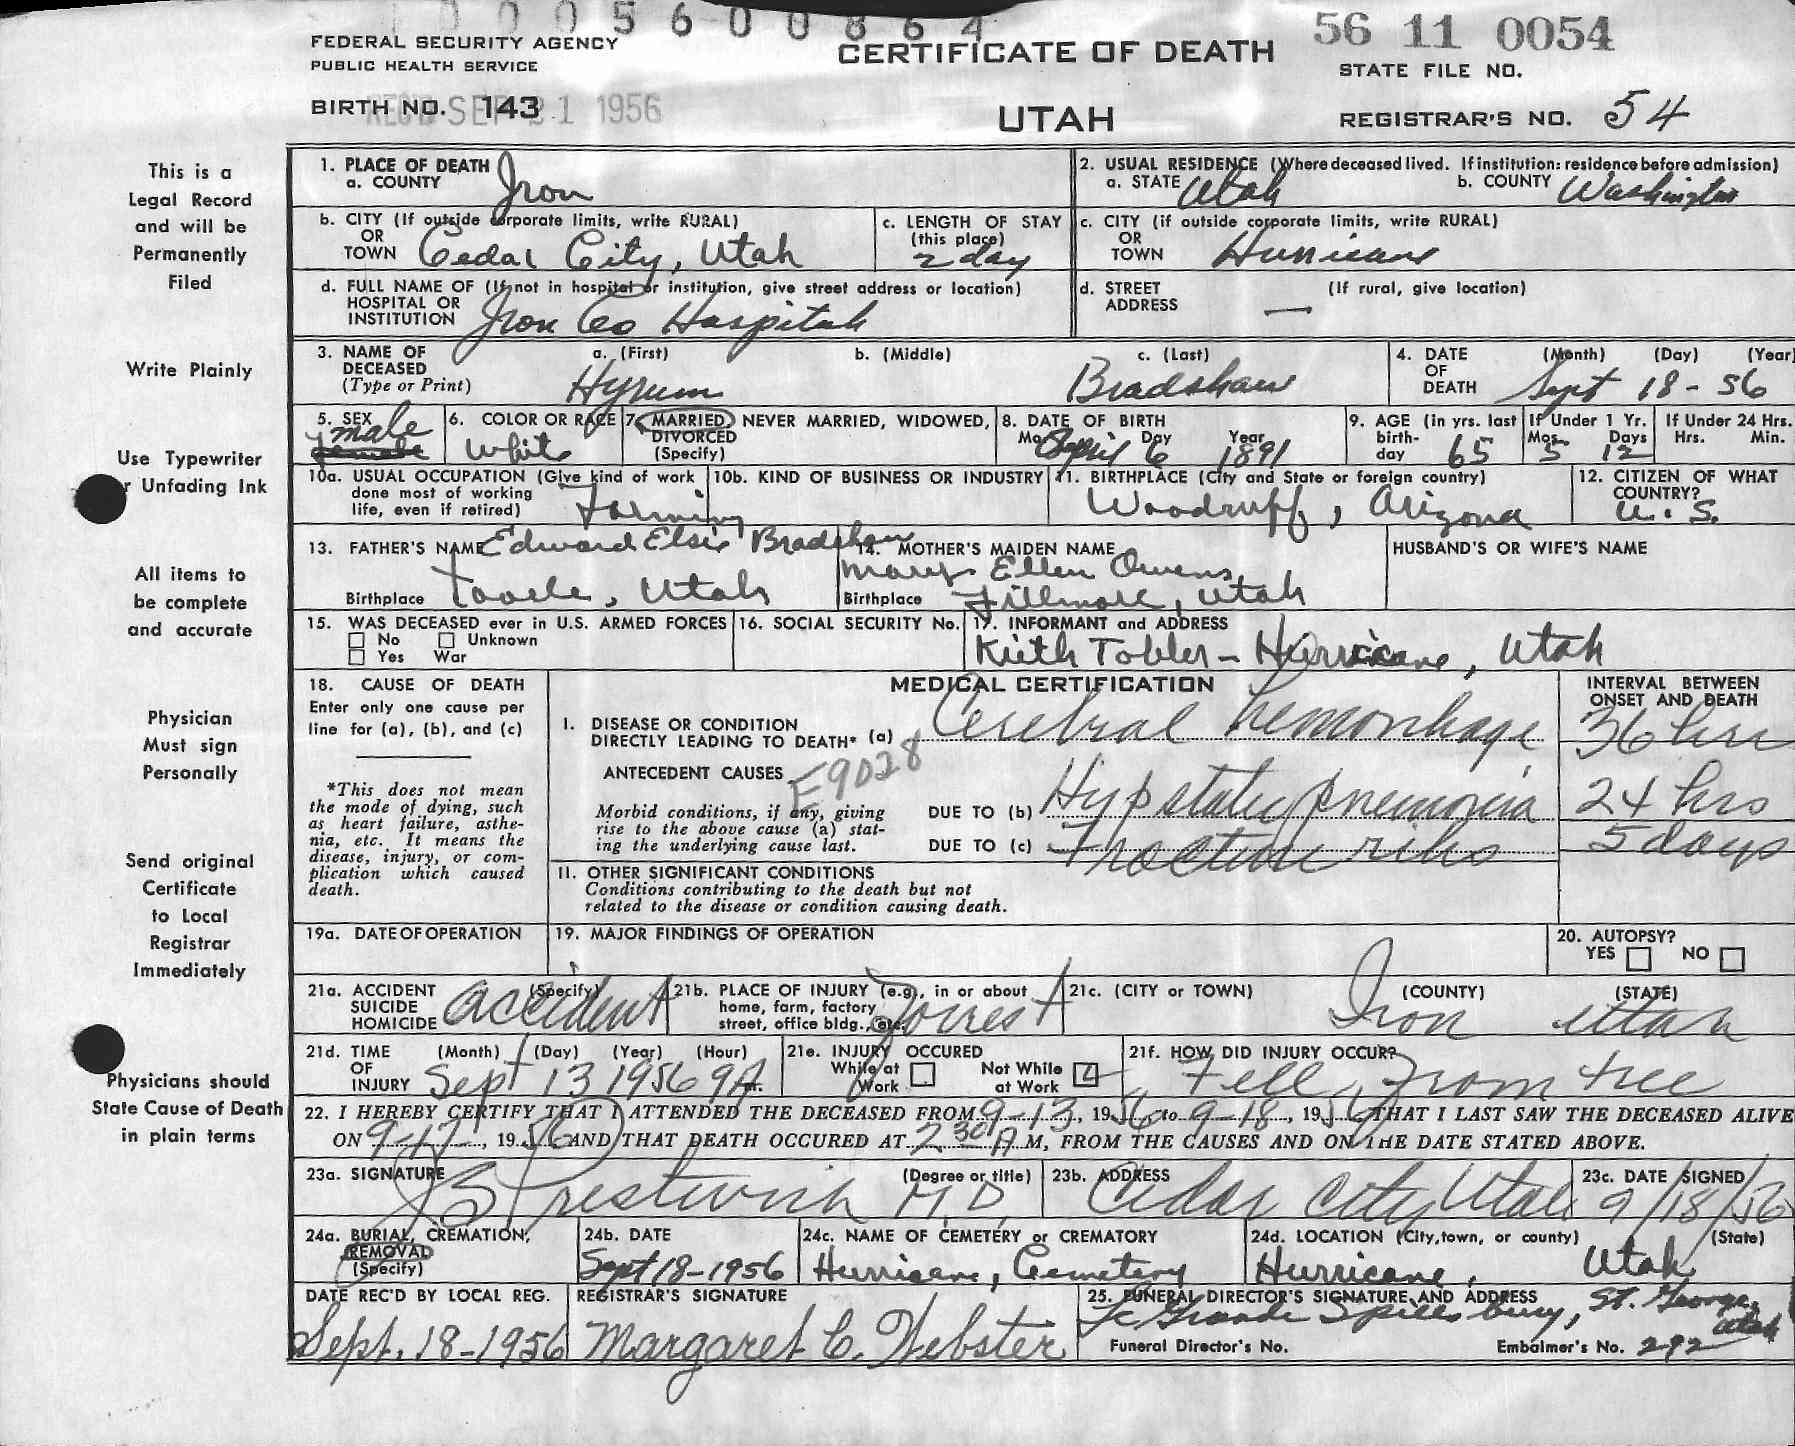 0005600864
56 11 0054
FEDERAL SECURITY AGENCY
PUBLIC HEALTH SERVICE
CERTIFICATE OF DEATH
STATE FILE NO.
BIRTH NO. 143
REC'D SEP 21 1956
UTAH
REGISTRAR'S NO. 54
This is a
Legal Record
and will be
Permanently
Filed
Write Plainly
Use Typewriter
r Unfading Ink
All items to
be complete
and accurate
Physician
Must sign
Personally
Send original
Certificate
to Local
Registrar
Immediately
Physicians should
State Cause of Death
in plain terms
1. PLACE OF DEATH
a. COUNTY Iron
2. USUAL RESIDENCE (Where deceased lived. If institution: residence before admission)
a. STATE Utah b. COUNTY Washington
b. CITY (If outside corporate limits, write RURAL)
OR
TOWN Cedar City, Utah
c. LENGTH OF STAY
(this place)
2 day
c. CITY (if outside corporate limits, write RURAL)
OR
TOWN Hurricane
d. FULL NAME OF (If not in hospital or institution, give street address or location)
HOSPITAL OR
INSTITUTION Iron Co Hospital
d. STREET (If rural, give location)
ADDRESS —
3. NAME OF
DECEASED
(Type or Print)
a. (First) b. (Middle) c. (Last)
Hyrum Bradshaw
4. DATE (Month) (Day) (Year)
OF
DEATH Sept 18-56
5. SEX
male
female
6. COLOR OR RACE
White
7. MARRIED, NEVER MARRIED, WIDOWED,
DIVORCED
(Specify)
8. DATE OF BIRTH
Mo. Day Year
April 6 1891
9. AGE (in yrs. last
birth-
day 65
If Under 1 Yr.
Mos. Days
5 12
If Under 24 Hrs.
Hrs. Min.
10a. USUAL OCCUPATION (Give kind of work
done most of working
life, even if retired) Farming
10b. KIND OF BUSINESS OR INDUSTRY
11. BIRTHPLACE (City and State or foreign country)
Woodruff, Arizona
12. CITIZEN OF WHAT
COUNTRY?
U. S.
13. FATHER'S NAME Edward Elsie Bradshaw
Birthplace Tooele, Utah
14. MOTHER'S MAIDEN NAME
Mary Ellen Owens
Birthplace Fillmore, Utah
HUSBAND'S OR WIFE'S NAME
15. WAS DECEASED ever in U.S. ARMED FORCES
No Unknown
Yes War
16. SOCIAL SECURITY No.
17. INFORMANT and ADDRESS
Keith Tobler - Hurricane, Utah
18. CAUSE OF DEATH
Enter only one cause per
line for (a), (b), and (c)
*This does not mean
the mode of dying, such
as heart failure, asthe-
nia, etc. It means the
disease, injury, or com-
plication which caused
death.
MEDICAL CERTIFICATION
INTERVAL BETWEEN
ONSET AND DEATH
I. DISEASE OR CONDITION
DIRECTLY LEADING TO DEATH* (a) Cerebral hemorrhage 36 hrs
ANTECEDENT CAUSES
E9028
Morbid conditions, if any, giving
rise to the above cause (a) stat-
ing the underlying cause last.
DUE TO (b) Hypostatic pnemonia 24 hrs
DUE TO (c) Fracture ribs 5 days
11. OTHER SIGNIFICANT CONDITIONS
Conditions contributing to the death but not
related to the disease or condition causing death.
19a. DATE OF OPERATION
19. MAJOR FINDINGS OF OPERATION
20. AUTOPSY?
YES NO
21a. ACCIDENT (Specify)
SUICIDE
HOMICIDE accident
21b. PLACE OF INJURY (e.g., in or about
home, farm, factory
street, office bldg., etc. Forrest
21c. (CITY or TOWN) (COUNTY) (STATE)
Iron Utah
21d. TIME (Month) (Day) (Year) (Hour)
OF
INJURY Sept 13 1956 9A m.
21e. INJURY OCCURED
While at Not While
Work at Work
21f. HOW DID INJURY OCCUR?
Fell from tree
22. I HEREBY CERTIFY THAT I ATTENDED THE DECEASED FROM 9-13, 1956 to 9-18, 1956 THAT I LAST SAW THE DECEASED ALIVE
ON 9-17, 1956 AND THAT DEATH OCCURED AT 2 30 A M, FROM THE CAUSES AND ON THE DATE STATED ABOVE.
23a. SIGNATURE (Degree or title)
Prestwich M.D.
23b. ADDRESS
Cedar City Utah
23c. DATE SIGNED
9/18/56
24a. BURIAL, CREMATION,
REMOVAL
(Specify)
24b. DATE
Sept 18-1956
24c. NAME OF CEMETERY or CREMATORY
Hurricane, Cemetery
24d. LOCATION (City, town, or county) (State)
Hurricane, Utah
DATE REC'D BY LOCAL REG.
Sept. 18-1956
REGISTRAR'S SIGNATURE
Margaret C. Webster
25. FUNERAL DIRECTOR'S SIGNATURE AND ADDRESS
Spillsbury, St. George,
Utah
Funeral Director's No. Embalmer's No. 292